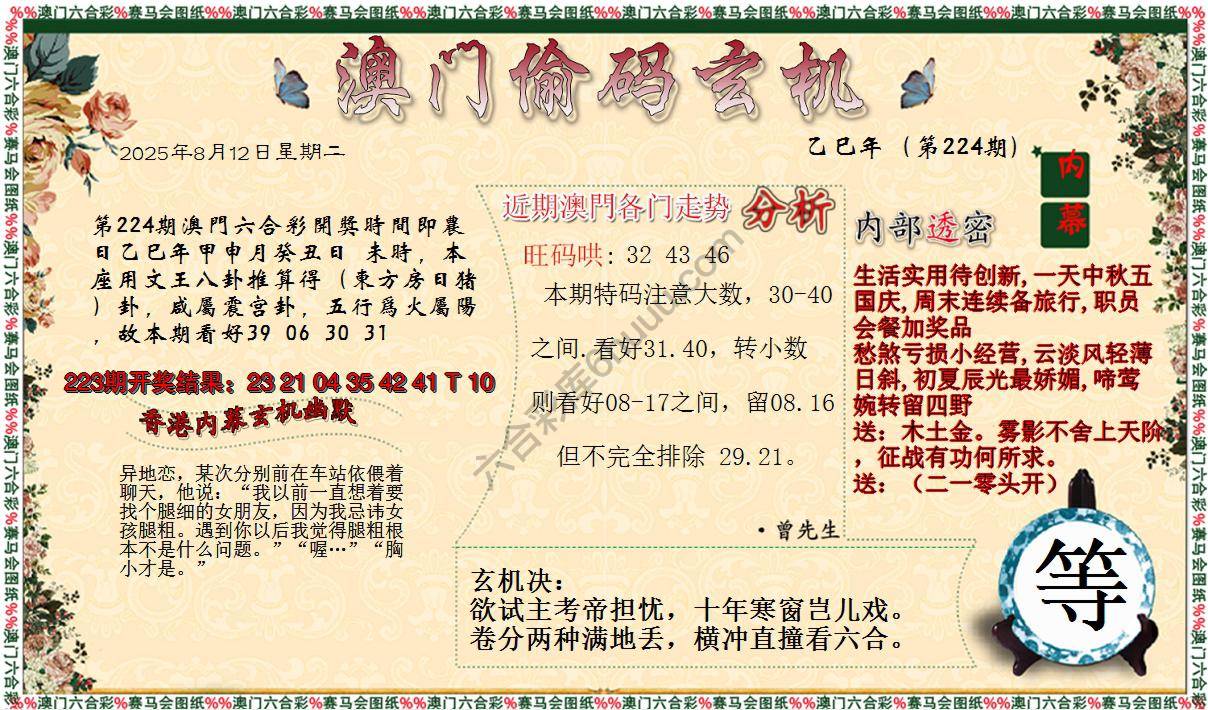 %%澳门六合彩%赛马会图纸%%澳门六合彩%赛马会图纸%%澳门六合彩%赛马会图纸%%澳门六合彩%赛马会图纸%%澳门六合彩%赛马会图纸%%澳门六合彩%赛马会图纸%%
澳门偷码玄机
2025年8月12日星期二
乙巳年（第224期）
内幕
第224期澳門六合彩開獎時間即農
日乙巳年甲申月癸丑日 未時，本
座用文王八卦推算得（東方房日猪
）卦，咸屬震宫卦，五行爲火屬陽
，故本期看好39 06 30 31
223期开奖结果：23 21 04 35 42 41 T 10
香港内幕玄机幽默
异地恋，某次分别前在车站依偎着
聊天，他说：“我以前一直想着要
找个腿细的女朋友，因为我忌讳女
孩腿粗。遇到你以后我觉得腿粗根
本不是什么问题。”“喔…”“胸
小才是。”
近期澳門各门走势 分析
旺码哄: 32 43 46
本期特码注意大数，30-40
之间.看好31.40，转小数
则看好08-17之间，留08.16
但不完全排除 29.21。
·曾先生
内部透密
生活实用待创新,一天中秋五
国庆,周末连续备旅行,职员
会餐加奖品
愁煞亏损小经营,云淡风轻薄
日斜,初夏辰光最娇媚,啼莺
婉转留四野
送：木土金。雾影不舍上天阶
，征战有功何所求。
送：（二一零头开）
玄机决：
欲试主考帝担忧，十年寒窗岂儿戏。
卷分两种满地丢，横冲直撞看六合。
等
%%澳门六合彩%赛马会图纸%%澳门六合彩%赛马会图纸%%澳门六合彩%赛马会图纸%%澳门六合彩%赛马会图纸%%澳门六合彩%赛马会图纸%%澳门六合彩%赛马会图纸%%